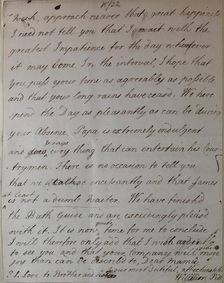 approach nearer that great happiness
I need not tell you that I wait with the
greatest Impatience for the day whenever
it may come. In the interval I hope that
you pass your time as agreeably as possible
and that your long rains have ceased. We have
spend the Day as pleasantly as can be during
your Absence. Papa is extremely indulgent
any thing that can entertain his
There is no occasion to tell you
that we incessantly and that
is not a dumb waiter. We have finished
the Bath Guide and are exceedingly pleased
with it. It is now time for me to conclude
I will therefore only add that I wish
to see you and that your Company will
than can be described to, Dear
I Love to Brother and most dutiful, affectionate
William Pitt